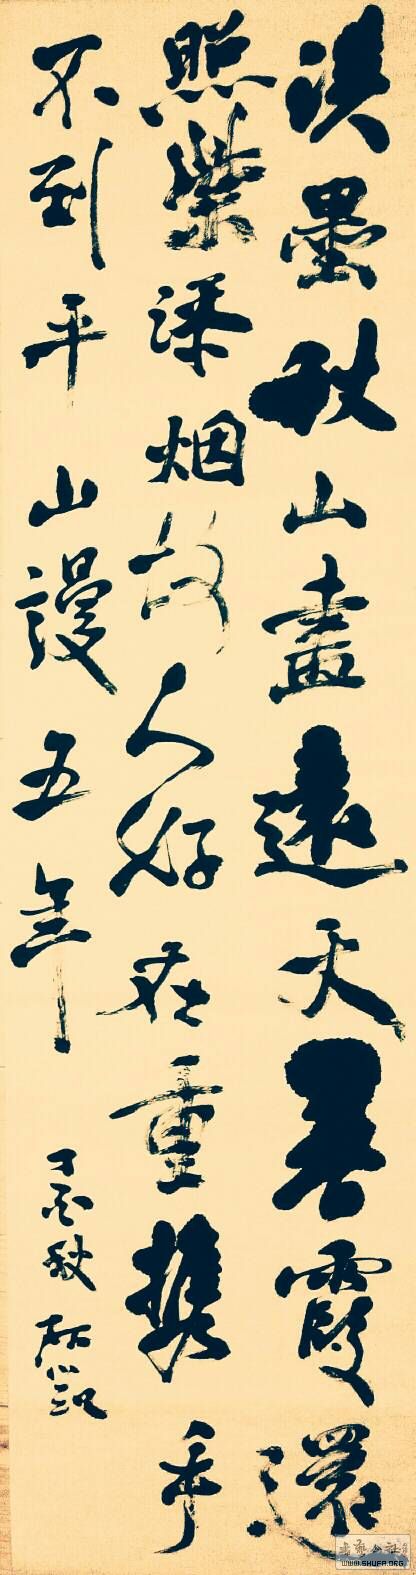 淡墨秋山畫遠天暮霞還
照紫添烟故人好在重携手
不到平山謾五年
丁酉秋
WWW.SHUFA.ORG